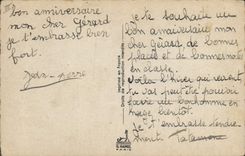 bon anniversaire
mon cher Gérard
je t'embrasse bien
fort.
Jean-pierre
je te souhaite un
bon anniversaire
mon
cher Gérard de bonnes
places et de bonnes notes
en classe
Voila l'hiver qui revient
tu vas peut être pouvoir
faire un bonhomme en
neige bientôt.
je t'embrasse tendre